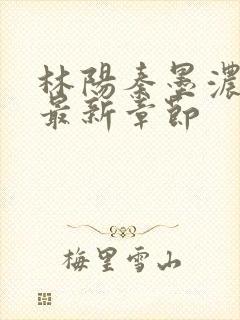 林陽秦墨濃
最新章節
梅里雪山